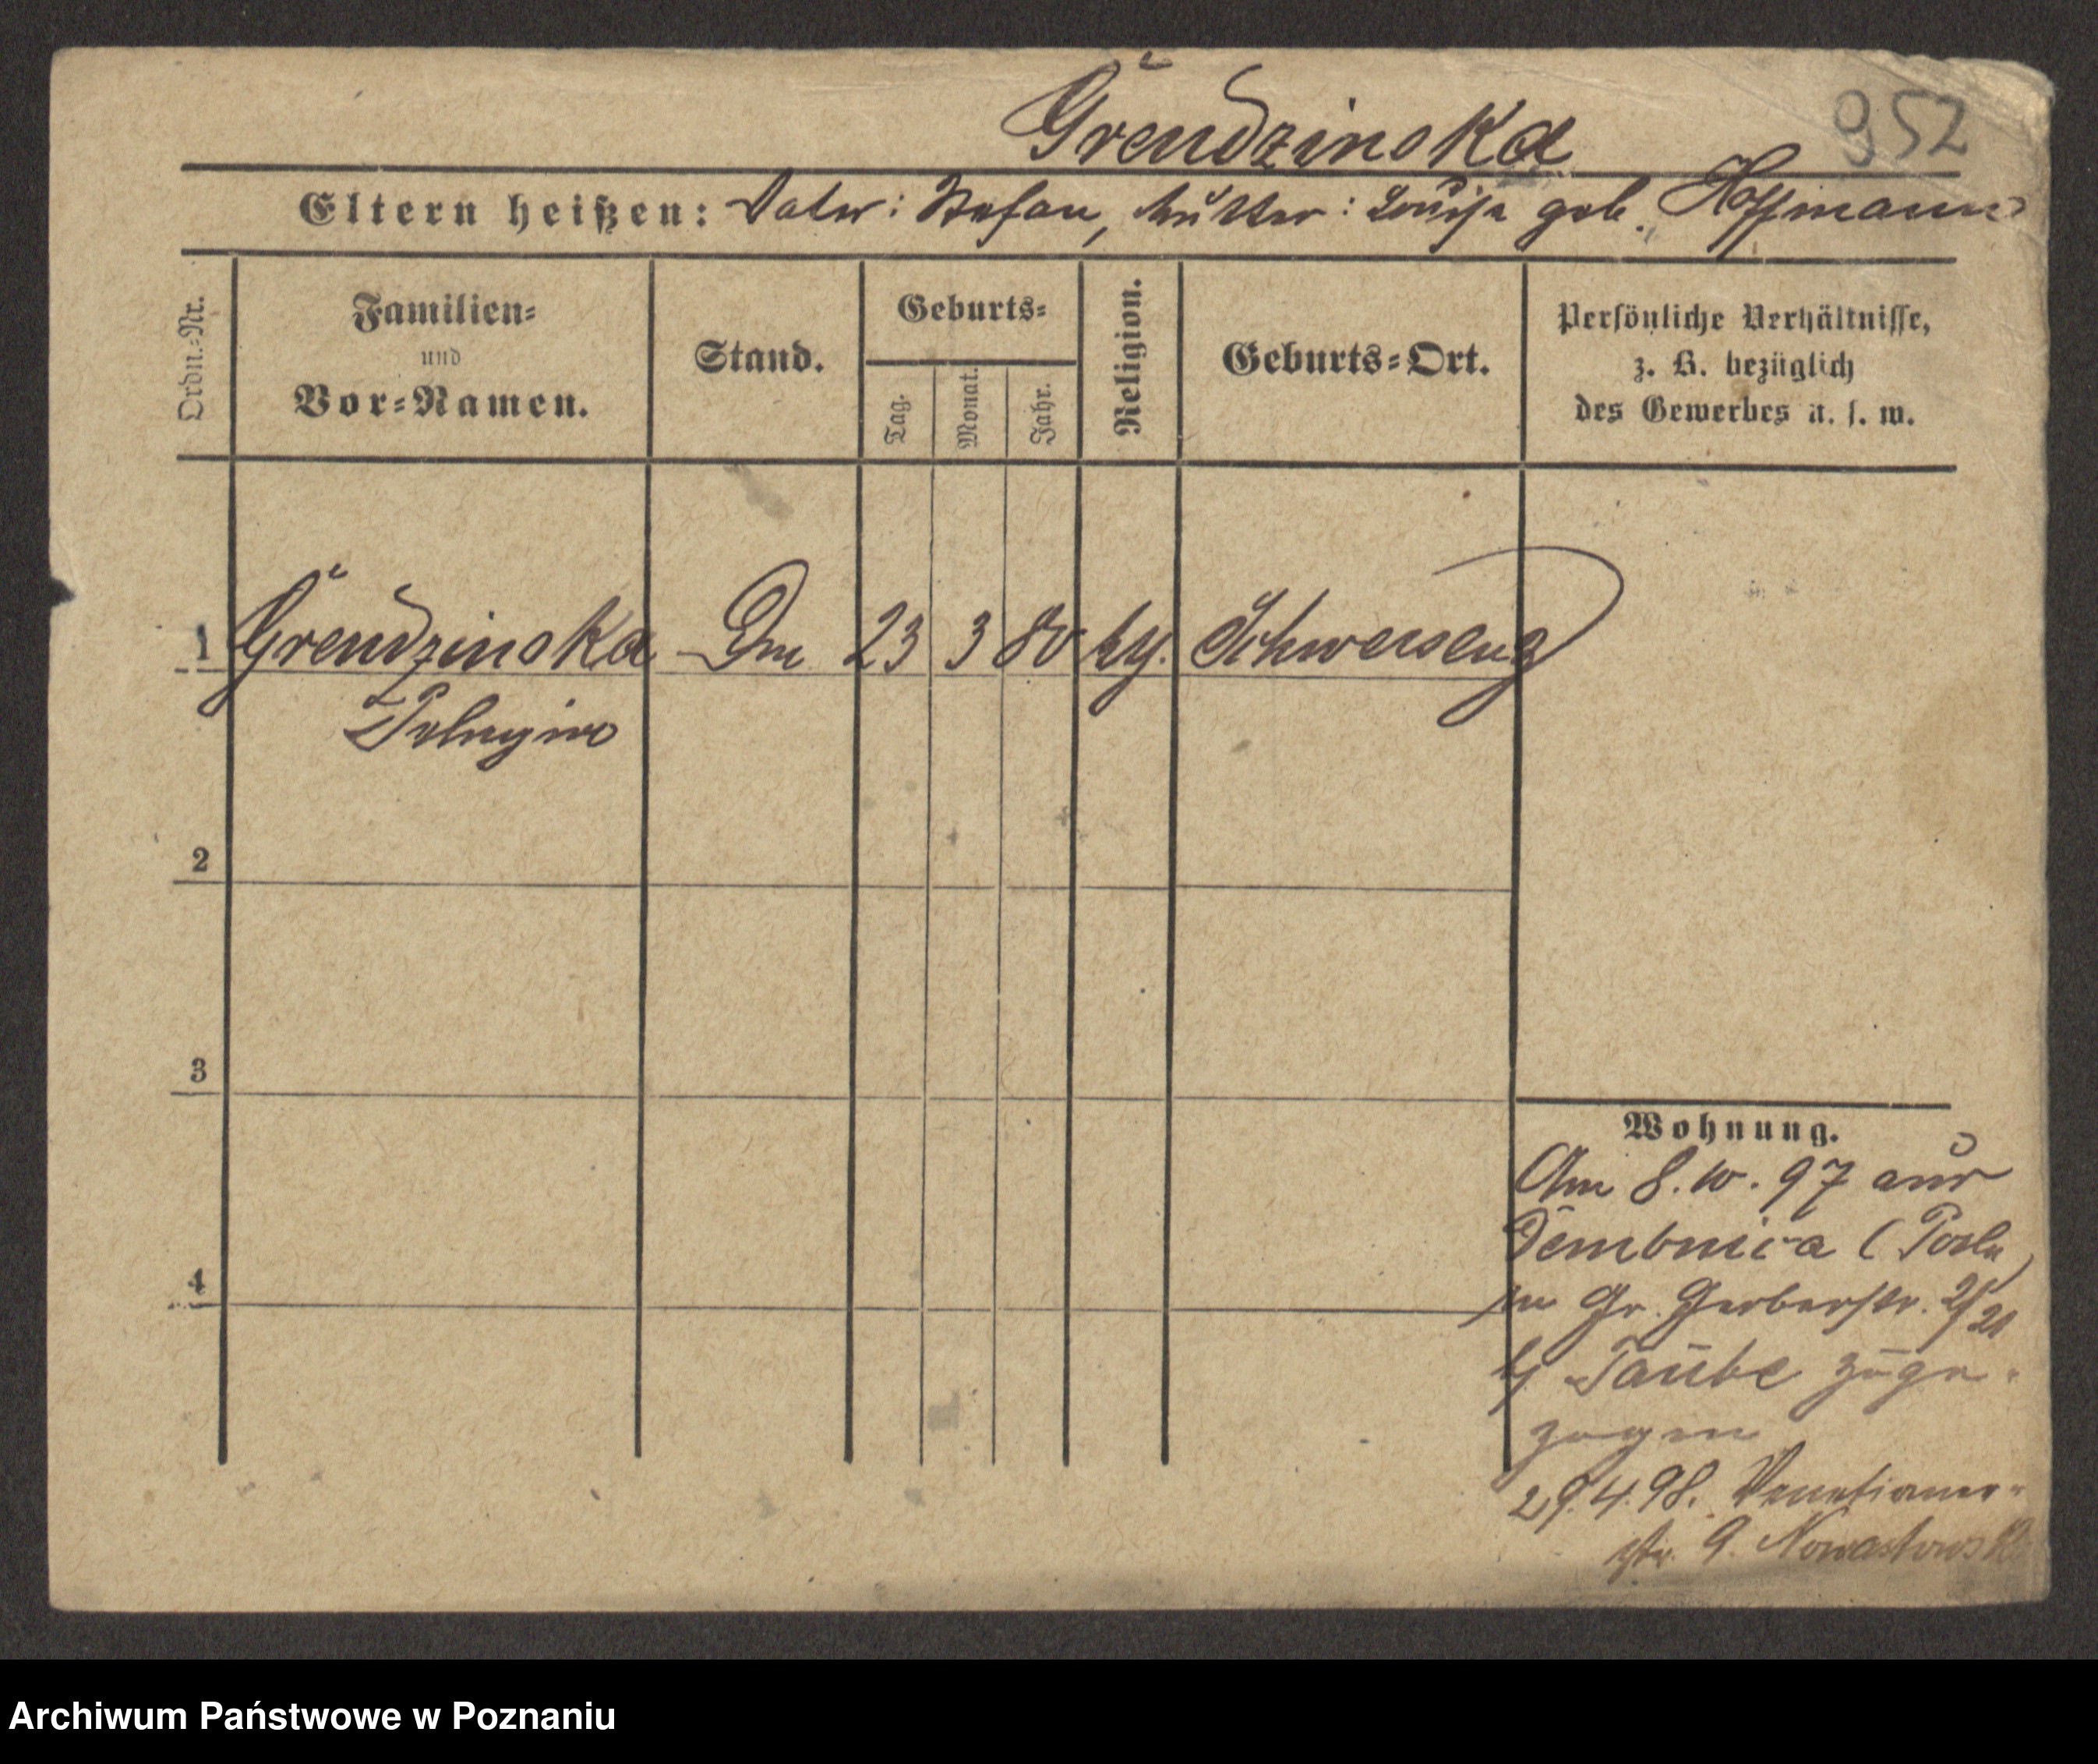 Grendzinska
952
Eltern heißen: Vater: Stefan, Mutter: Louise geb. Hoffmann
Ordn.-Nr.
Familien-
und
Vor-Namen.
Stand.
Geburts-
Tag.
Monat.
Jahr.
Religion.
Geburts-Ort.
Persönliche Verhältnisse,
z. B. bezüglich
des Gewerbes u. s. w.
1 Grendzinska Dm 23 3 80 Schwersenz
Pelagia
2
3
4
Wohnung.
Am 8. 10. 97 aus
Dembnica (
Gr. Gerberstr.
Taube zuge-
zogen
29. 4. 98. Venetianer-
str. 9.
Archiwum Państwowe w Poznaniu